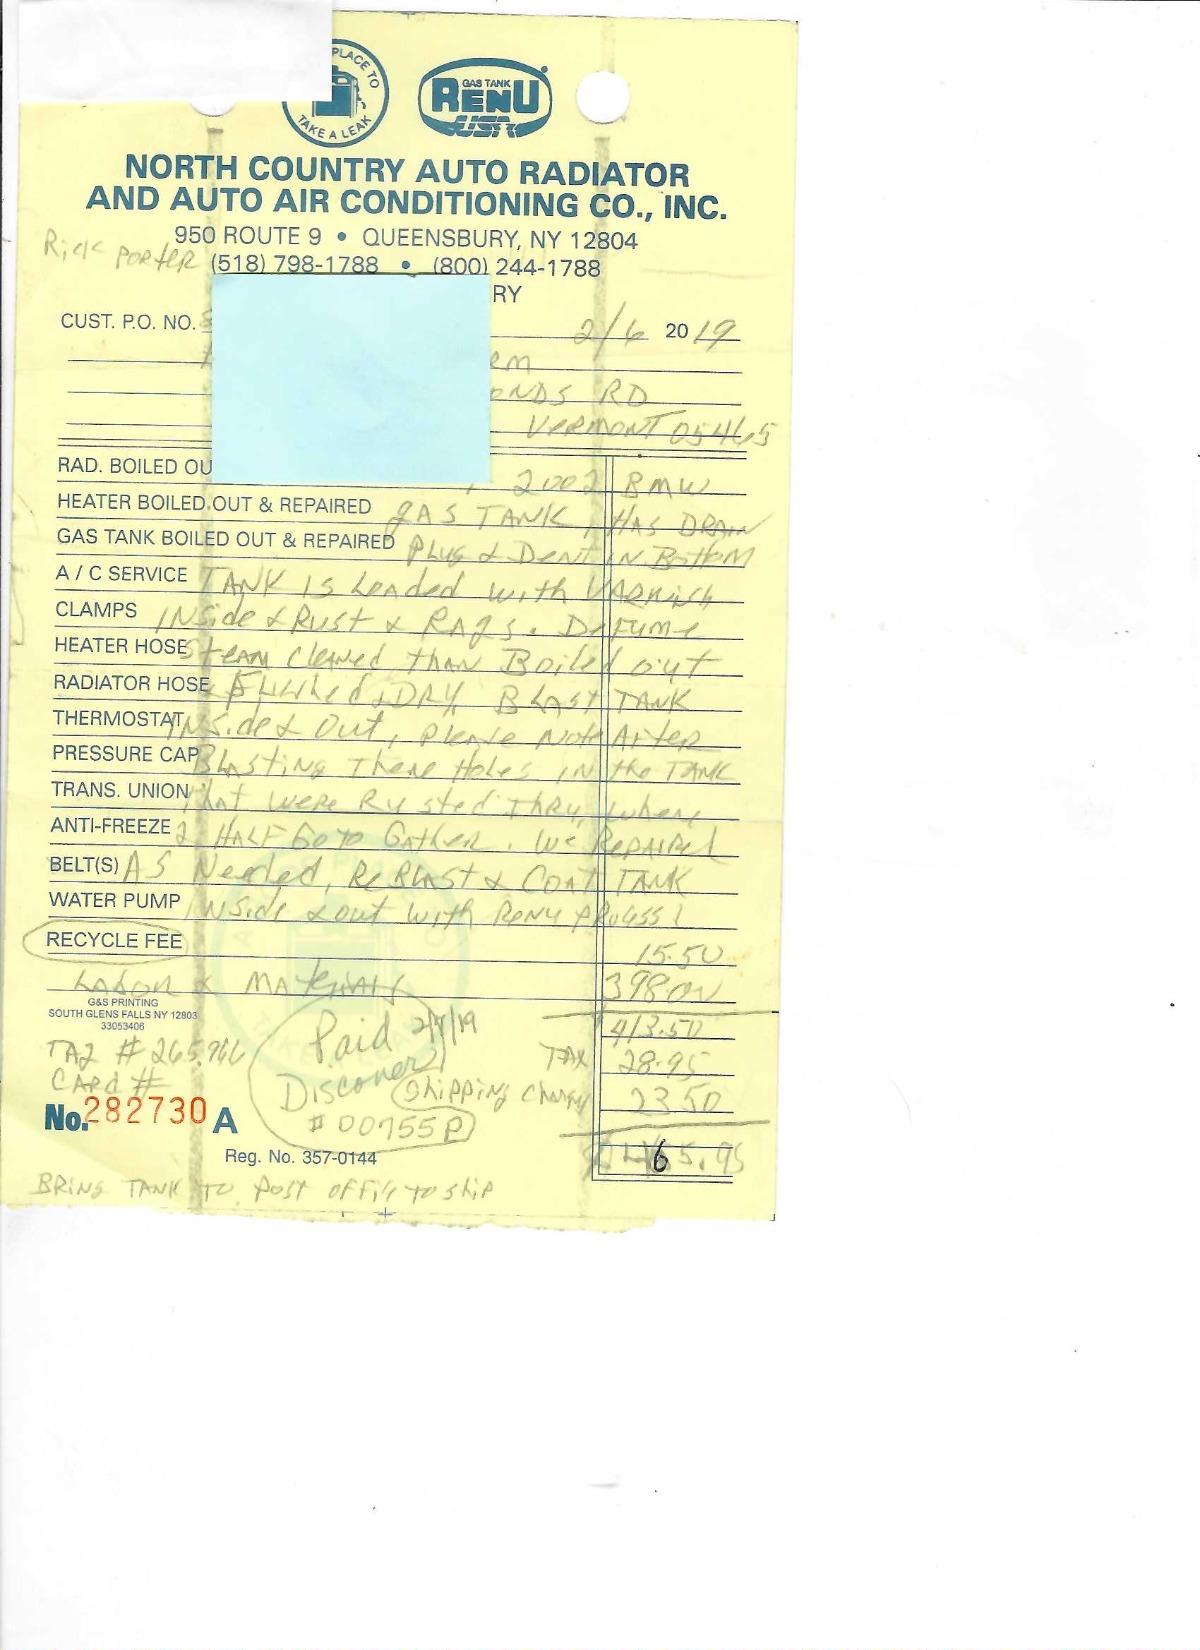 PLACE TO
TAKE A LEAK
GAS TANK
RENU
USA
NORTH COUNTRY AUTO RADIATOR
AND AUTO AIR CONDITIONING CO., INC.
950 ROUTE 9 • QUEENSBURY, NY 12804
Rick PORTER (518) 798-1788 • (800) 244-1788
RY
CUST. P.O. NO. 2/6 2019
RM
ONDS RD
VERMONT 05465
RAD. BOILED OU 2002 BMW
HEATER BOILED OUT & REPAIRED GAS TANK, HAS DRAIN
GAS TANK BOILED OUT & REPAIRED Plug & Dent IN Bottom
A / C SERVICE TANK IS Loaded with VARNish
CLAMPS INside & Rust & RAgs. DeFume
HEATER HOSE Steam Cleaned than Boiled out
RADIATOR HOSE Flushed & DRY, BLAST TANK
THERMOSTAT INside & Out, Please Note After
PRESSURE CAP Blasting There Holes IN the TANK
TRANS. UNION that were Rusted thru, where
ANTI-FREEZE 2 HALF Go to Gather. We Repaired
BELT(S) AS Needed, ReBlast & Coat TANK
WATER PUMP INside & out with Renu process
RECYCLE FEE 15.50
Labor & Materials 398
G&S PRINTING
SOUTH GLENS FALLS NY 12803
33053406
413.50
Paid 2/7/19
TAX 28.95
Discover
CARD #
Shipping Charge 23.50
# 00755P
No. 282730 A
465.95
Reg. No. 357-0144
BRING TANK TO Post office to ship